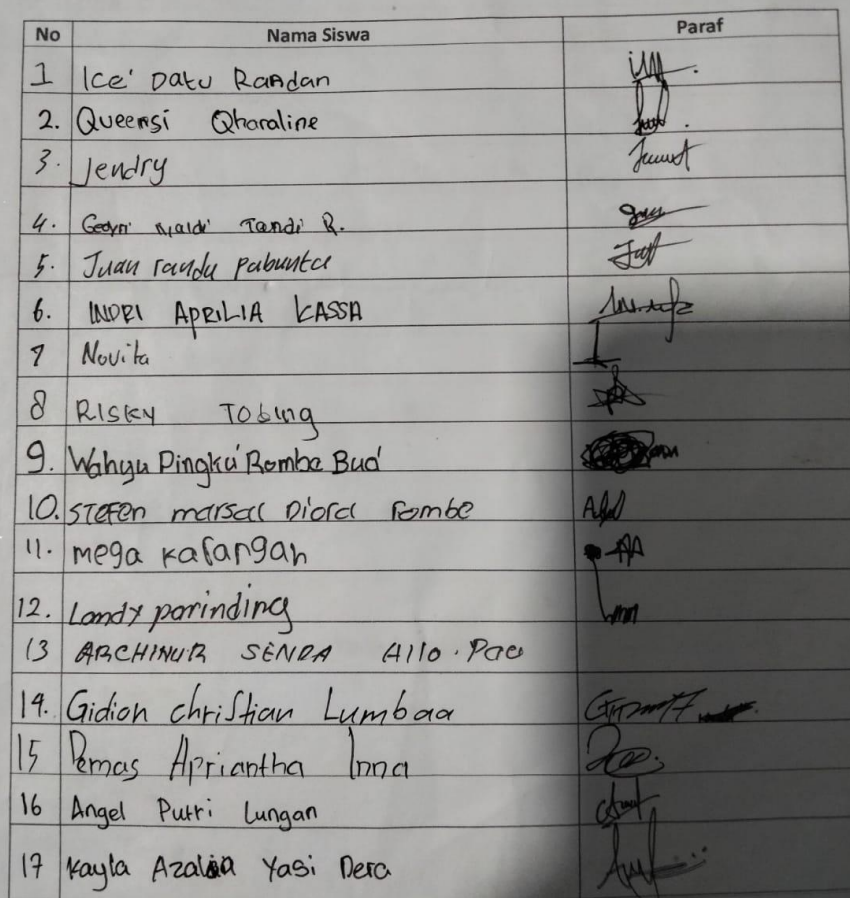 No Nama Siswa Paraf
1 Ice' Datu Randan
2. Queensi Qharaline
3. Jendry
4. Tandi R.
5. Juan randu pabunta
6. INDRI APRILIA KASSA
7 Novita
8 RISKY TObing
9. Wahyu Pingku' Rombe Bua'
10. STEFEN marsall Diora rombe
11. mega Karangan
12. Landy parinding
13 ARCHINUR SENDA Allo. Pao
14. Gidion christian Lumbaa
15 Demas Apriantha Inna
16 Angel Putri Lungan
17 Kayla Azalia Yasi Dera